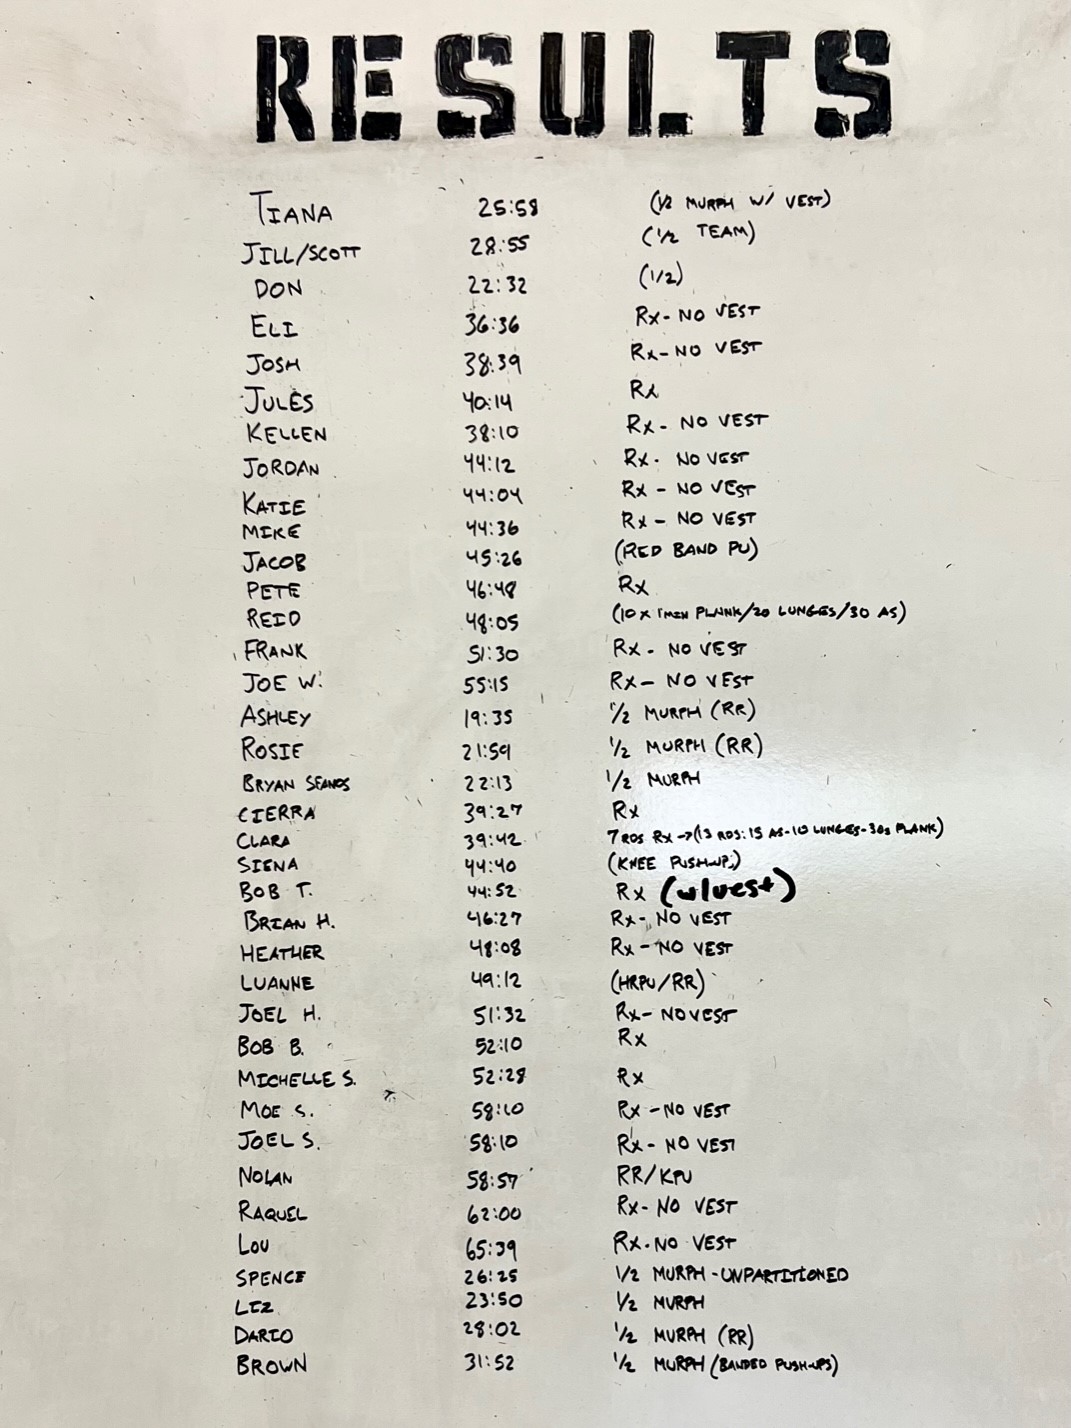 RESULTS
TIANA 25:58 (1/2 MURPH W/ VEST)
JILL/SCOTT 28:55 (1/2 TEAM)
DON 22:32 (1/2)
ELI 36:36 Rx - NO VEST
JOSH 38:39 Rx - NO VEST
JULES 40:14 Rx
KELLEN 38:10 Rx - NO VEST
JORDAN 44:12 Rx - NO VEST
KATIE 44:04 Rx - NO VEST
MIKE 44:36 Rx - NO VEST
JACOB 45:26 (RED BAND PU)
PETE 46:48 Rx
REID 48:05 (10 x 1MIN PLANK/20 LUNGES/30 AS)
FRANK 51:30 Rx - NO VEST
JOE W. 55:15 Rx - NO VEST
ASHLEY 19:35 1/2 MURPH (RR)
ROSIE 21:59 1/2 MURPH (RR)
BRYAN 22:13 1/2 MURPH
CIERRA 39:27 Rx
CLARA 39:42 7 RDS Rx → (13 RDS: 15 AS-10 LUNGES-30s PLANK)
SIENA 44:40 (KNEE PUSH-UP)
BOB T. 44:52 Rx (w/vest)
BRIAN H. 46:27 Rx - NO VEST
HEATHER 48:08 Rx - NO VEST
LUANNE 49:12 (HRPU/RR)
JOEL H. 51:32 Rx - NO VEST
BOB B. 52:10 Rx
MICHELLE S. 52:28 Rx
MOE S. 58:10 Rx - NO VEST
JOEL S. 58:10 Rx - NO VEST
NOLAN 58:57 RR/KPU
RAQUEL 62:00 Rx - NO VEST
LOU 65:39 Rx - NO VEST
SPENCE 26:25 1/2 MURPH - UNPARTITIONED
LIZ 23:50 1/2 MURPH
DARIO 28:02 1/2 MURPH (RR)
BROWN 31:52 1/2 MURPH (BANDED PUSH-UPS)